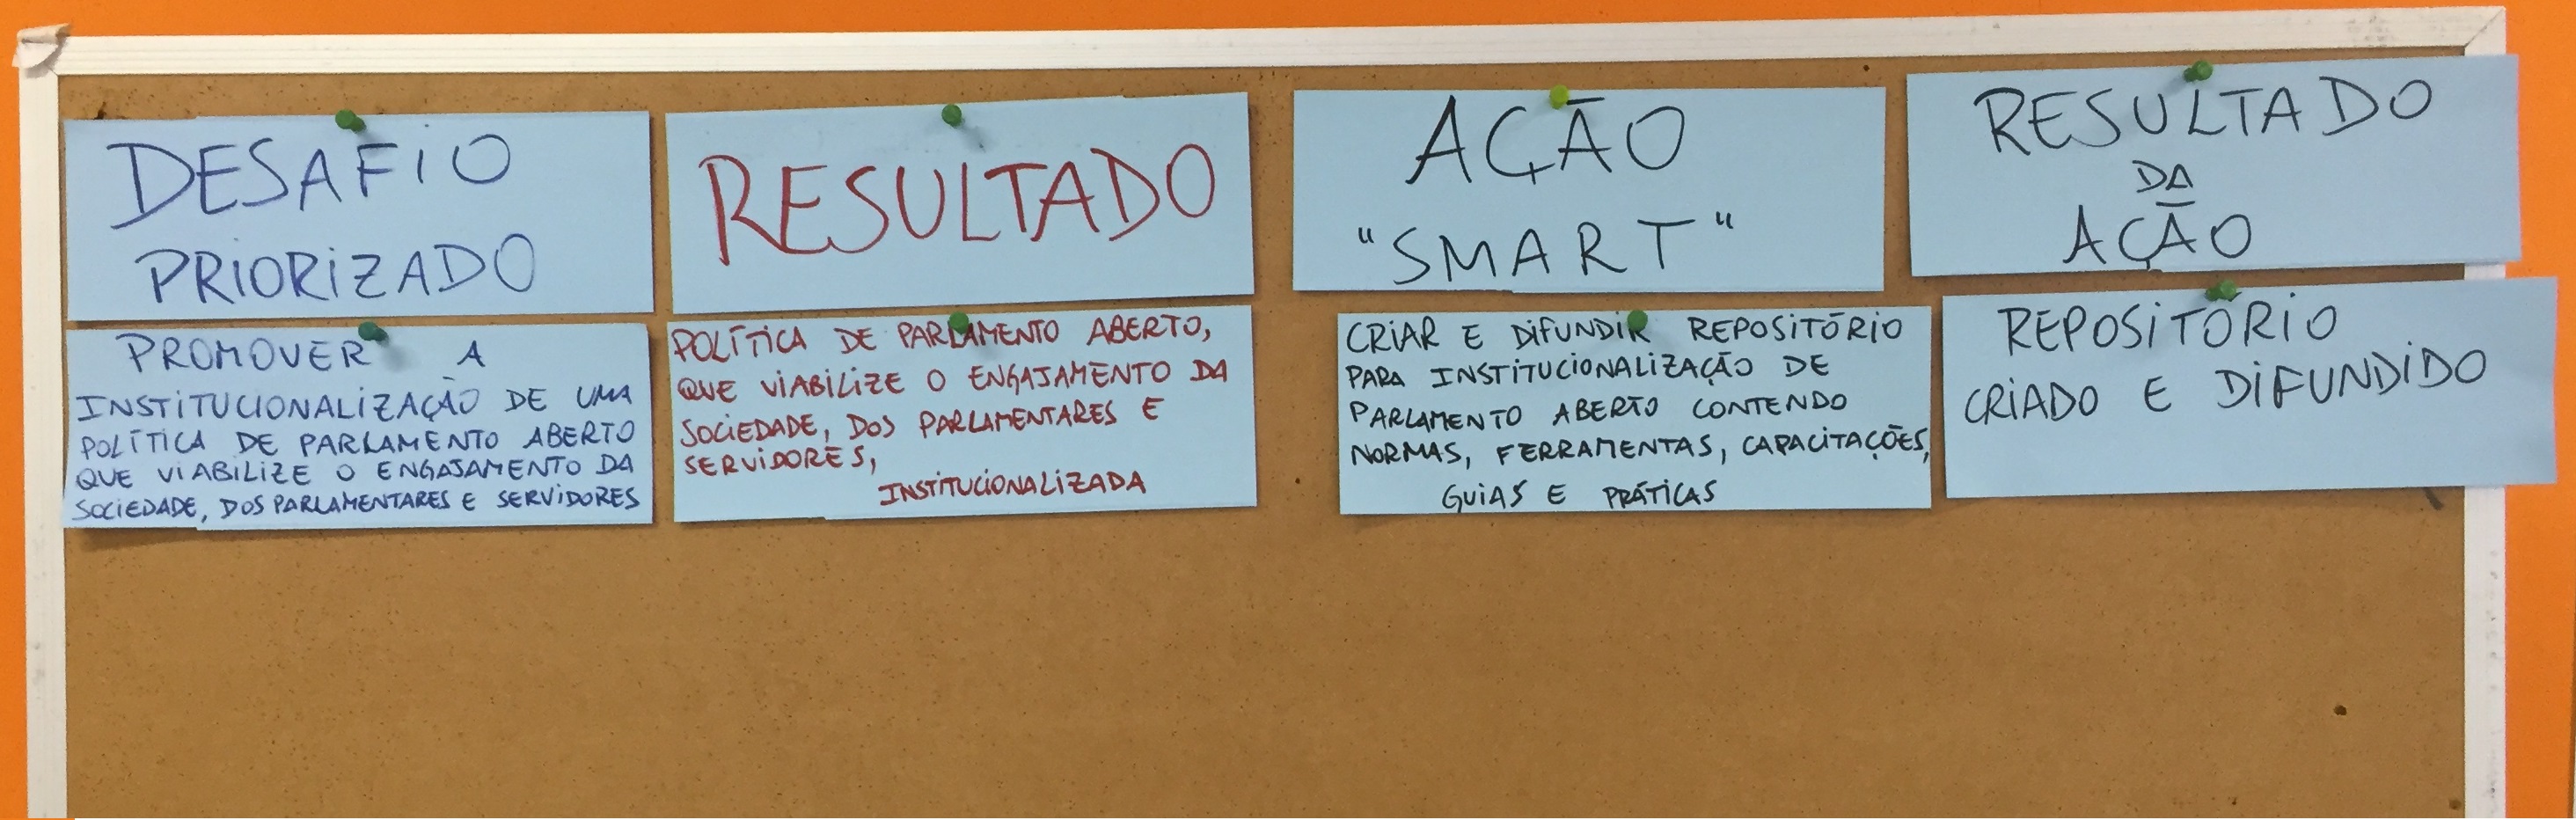 DESAFIO
PRIORIZADO
PROMOVER A
INSTITUCIONALIZAÇÃO DE UMA
POLÍTICA DE PARLAMENTO ABERTO
QUE VIABILIZE O ENGAJAMENTO DA
SOCIEDADE, DOS PARLAMENTARES E SERVIDORES
RESULTADO
POLÍTICA DE PARLAMENTO ABERTO,
QUE VIABILIZE O ENGAJAMENTO DA
SOCIEDADE, DOS PARLAMENTARES E
SERVIDORES,
INSTITUCIONALIZADA
AÇÃO
"SMART"
CRIAR E DIFUNDIR REPOSITÓRIO
PARA INSTITUCIONALIZAÇÃO DE
PARLAMENTO ABERTO CONTENDO
NORMAS, FERRAMENTAS, CAPACITAÇÕES,
GUIAS E PRÁTICAS
RESULTADO
DA
AÇÃO
REPOSITÓRIO
CRIADO E DIFUNDIDO